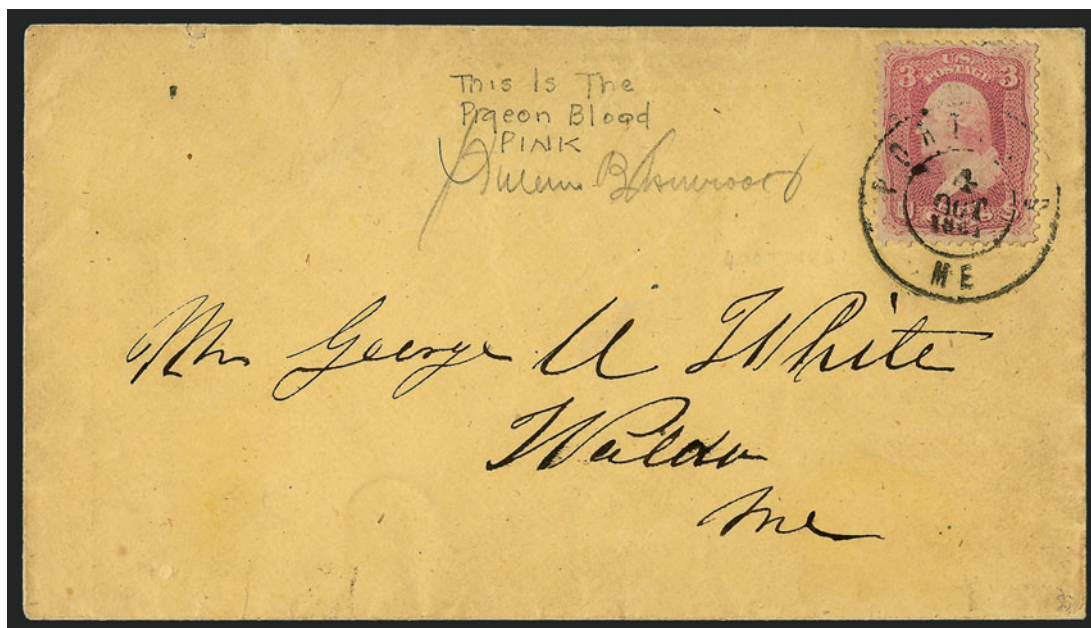 This Is The
Pigeon Blood
PINK
3 U.S. 3
POSTAGE
PORT
4
OCT
ME
Mr George U White
Waldo
Me